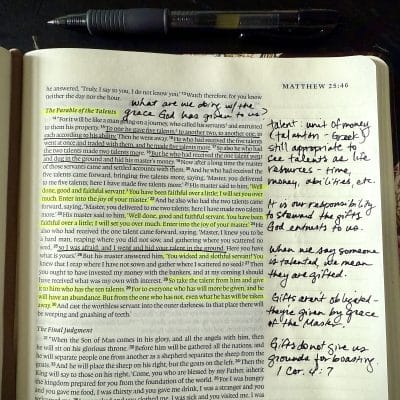 MATTHEW 25:46
he answered, 'Truly, I say to you, I do not know you.' 13 Watch therefore, for you know
neither the day nor the hour.
what are we doing w/ the
grace God has given to us?
The Parable of the Talents
14 "For it will be like a man going on a journey, who called his servants and entrusted
to them his property. 15 To one he gave five talents, to another two, to another one, to
each according to his ability. Then he went away. 16 He who had received the five talents
went at once and traded with them, and he made five talents more. 17 So also he who had
the two talents made two talents more. 18 But he who had received the one talent went
and dug in the ground and hid his master's money. 19 Now after a long time the master
of those servants came and settled accounts with them. 20 And he who had received the
five talents came forward, bringing five talents more, saying, 'Master, you delivered
to me five talents; here I have made five talents more.' 21 His master said to him, 'Well
done, good and faithful servant. You have been faithful over a little; I will set you over
much. Enter into the joy of your master.' 22 And he also who had the two talents came
forward, saying, 'Master, you delivered to me two talents; here I have made two talents
more.' 23 His master said to him, 'Well done, good and faithful servant. You have been
faithful over a little; I will set you over much. Enter into the joy of your master.' 24 He
also who had received the one talent came forward, saying, 'Master, I knew you to be
a hard man, reaping where you did not sow, and gathering where you scattered no
seed, 25 so I was afraid, and I went and hid your talent in the ground. Here you have
what is yours.' 26 But his master answered him, 'You wicked and slothful servant! You
knew that I reap where I have not sown and gather where I scattered no seed? 27 Then
you ought to have invested my money with the bankers, and at my coming I should
have received what was my own with interest. 28 So take the talent from him and give
it to him who has the ten talents. 29 For to everyone who has will more be given, and he
will have an abundance. But from the one who has not, even what he has will be taken
away. 30 And cast the worthless servant into the outer darkness. In that place there will
be weeping and gnashing of teeth.'
The Final Judgment
31 "When the Son of Man comes in his glory, and all the angels with him, then
he will sit on his glorious throne. 32 Before him will be gathered all the nations, and
he will separate people one from another as a shepherd separates the sheep from the
goats. 33 And he will place the sheep on his right, but the goats on the left. 34 Then the
King will say to those on his right, 'Come, you who are blessed by my Father, inherit
the kingdom prepared for you from the foundation of the world. 35 For I was hungry
and you gave me food, I was thirsty and you gave me drink, I was a stranger and you
talent: unit of money
(talanton - Greek)
still appropriate to
see talents as life
resources - time,
money, abilities, etc.
It is our responsibility
to steward the gifts
God entrusts to us.
When we say someone
is talented, we mean
they are gifted.
Gifts arent obligated -
they're given by grace
of the Master.
Gifts do not give us
grounds for boasting
1 Cor. 4:7